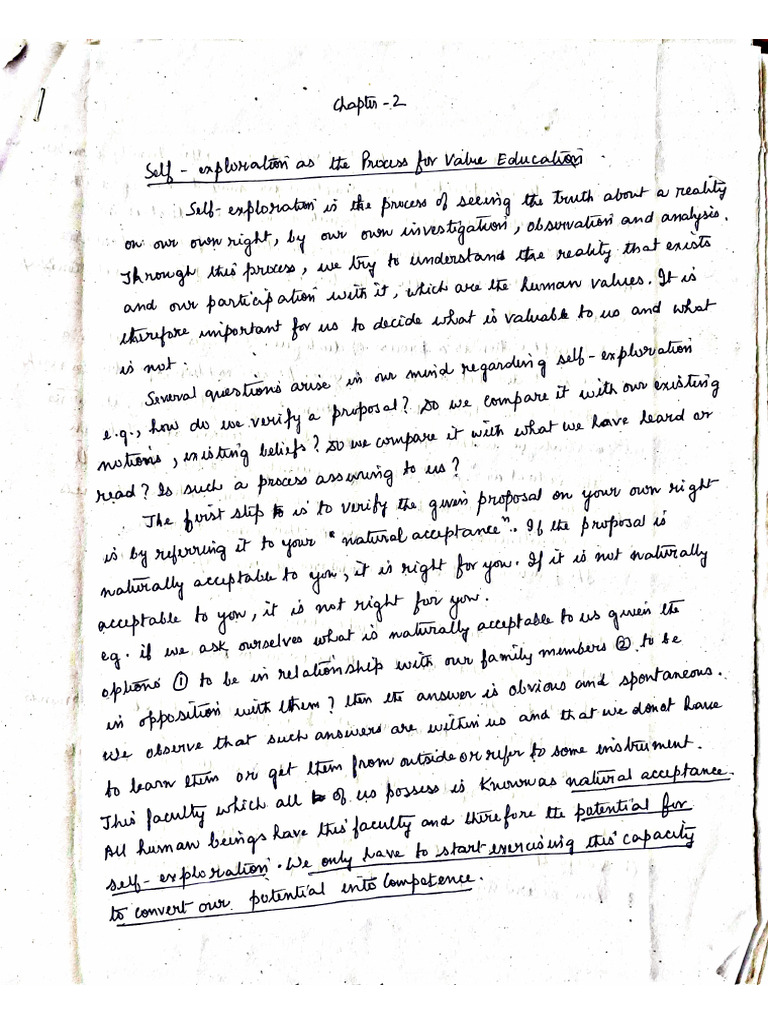 Chapter - 2
Self - exploration as the Process for Value Education.
Self-exploration is the process of seeing the truth about a reality
on our own right, by our own investigation, observation and analysis.
Through this process, we try to understand the reality that exists
and our participation with it, which are the human values. It is
therefore important for us to decide what is valuable to us and what
is not.
Several questions arise in our mind regarding self-exploration
e.g., how do we verify a proposal? Do we compare it with our existing
notions, existing beliefs? Do we compare it with what we have heard or
read? Is such a process assuring to us?
The first step is to verify the given proposal on your own right
is by referring it to your "natural acceptance". If the proposal is
naturally acceptable to you, it is right for you. If it is not naturally
acceptable to you, it is not right for you.
eg. if we ask ourselves what is naturally acceptable to us given the
options ① to be in relationship with our family members ② to be
in opposition with them? then the answer is obvious and spontaneous.
We observe that such answers are within us and that we donot have
to learn them or get them from outside or refer to some instrument.
This faculty which all of us possess is Known as natural acceptance.
All human beings have this faculty and therefore the potential for
self-exploration. We only have to start exercising this capacity
to convert our potential into Competence.